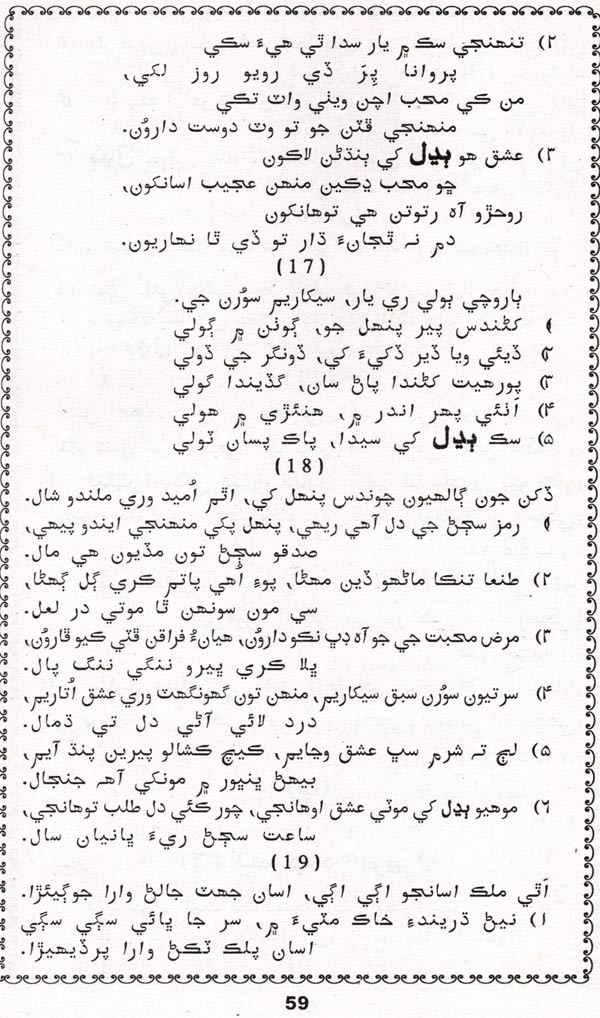 ۲) تنهنجي سڪ ۾ يار سدا ٿي هيءَ سڪي
پروانا پِرَ ڏي رويو روز لکي،
من ڪي محب اچن ويٺي واٽ تڪي
منهنجي ڦٽن جو تو وٽ دوست دارُون.
۳) عشق هو ٻڍل کي ٻنڌڻن لاڪون
ڇو محب ڍڪين منهن عجيب اسانکون،
روحڙو آه رتوتن هي توهانکون
دم نہ ٿڃانءَ ڌار تو ڏي ٿا نهاريون.
(17)
ٻاروچي ٻولي ري يار، سيکاريم سوُرن جي.
۱ ڪڻندس پير پنهل جو، ڳوٺن ۾ ڳولي
۲ ڏيئي ويا ڏير ڏکيءَ کي، ڏونگر جي ڏولي
۳) پورهيت ڪڻندا پاڻ سان، گڏيندا گولي
۴) اَنئي پهر اندر ۾، هنئڙي ۾ هولي
۵) سڪ ٻڍل کي سيدا، پاڪ پسان ٽولي
(18)
ڏکن جون ڳالهيون چوندس پنهل کي، اٿم اُميد وري ملندو شال.
۱ رمز سڄڻ جي دل آهي ريهي، پنهل پکي منهنجي ايندو پيهي،
صدقو سڄڻ تون مڏيون هي مال.
۲) طنعا تنڪا ماڻهو ڏين مهڻا، پوءِ اُهي پاتم ڪري ڳل ڳهڻا،
سي مون سونهن ٿا موتي در لعل.
۳) مرض محبت جي جو آه ڊپ نڪو داروُن، هيانءُ فراقن ڦٽي ڪيو ڦاروُن،
ڀلا ڪري ڀيرو ننگي ننگ پال.
۴) سرتيون سوُرن سبق سيکاريم، منهن تون گهونگهٽ وري عشق اُتاريم،
درد لائي آڻي دل تي ڌمال.
۵) لڄ تہ شرم سڀ عشق وڃايم، ڪيچ ڪشالو پيرين پنڌ آيم،
بيهڻ ڀنڀور ۾ مونکي آهہ جنجال.
۶) موهيو ٻڍل کي موٽي عشق اوهانجي، چور ڪئي دل طلب توهانجي،
ساعت سڄڻ ريءَ ڀانيان سال.
(19)
اَٿي ملڪ اسانجو اڳي اڳي، اسان جهٽ جالڻ وارا جوڳيئڙا.
۱) نيڻ ڌريندءِ خاڪ مٽيءَ ۾، سر جا ڀائي سڳي سڳي
اسان پلڪ ٽڪڻ وارا پرڏيهيڙا.
59